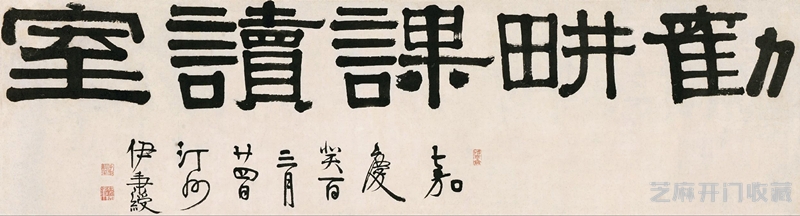 勸畊課讀室
嘉
慶
癸酉
三月
廿四日
汀州
伊秉綬
芝麻开门收藏